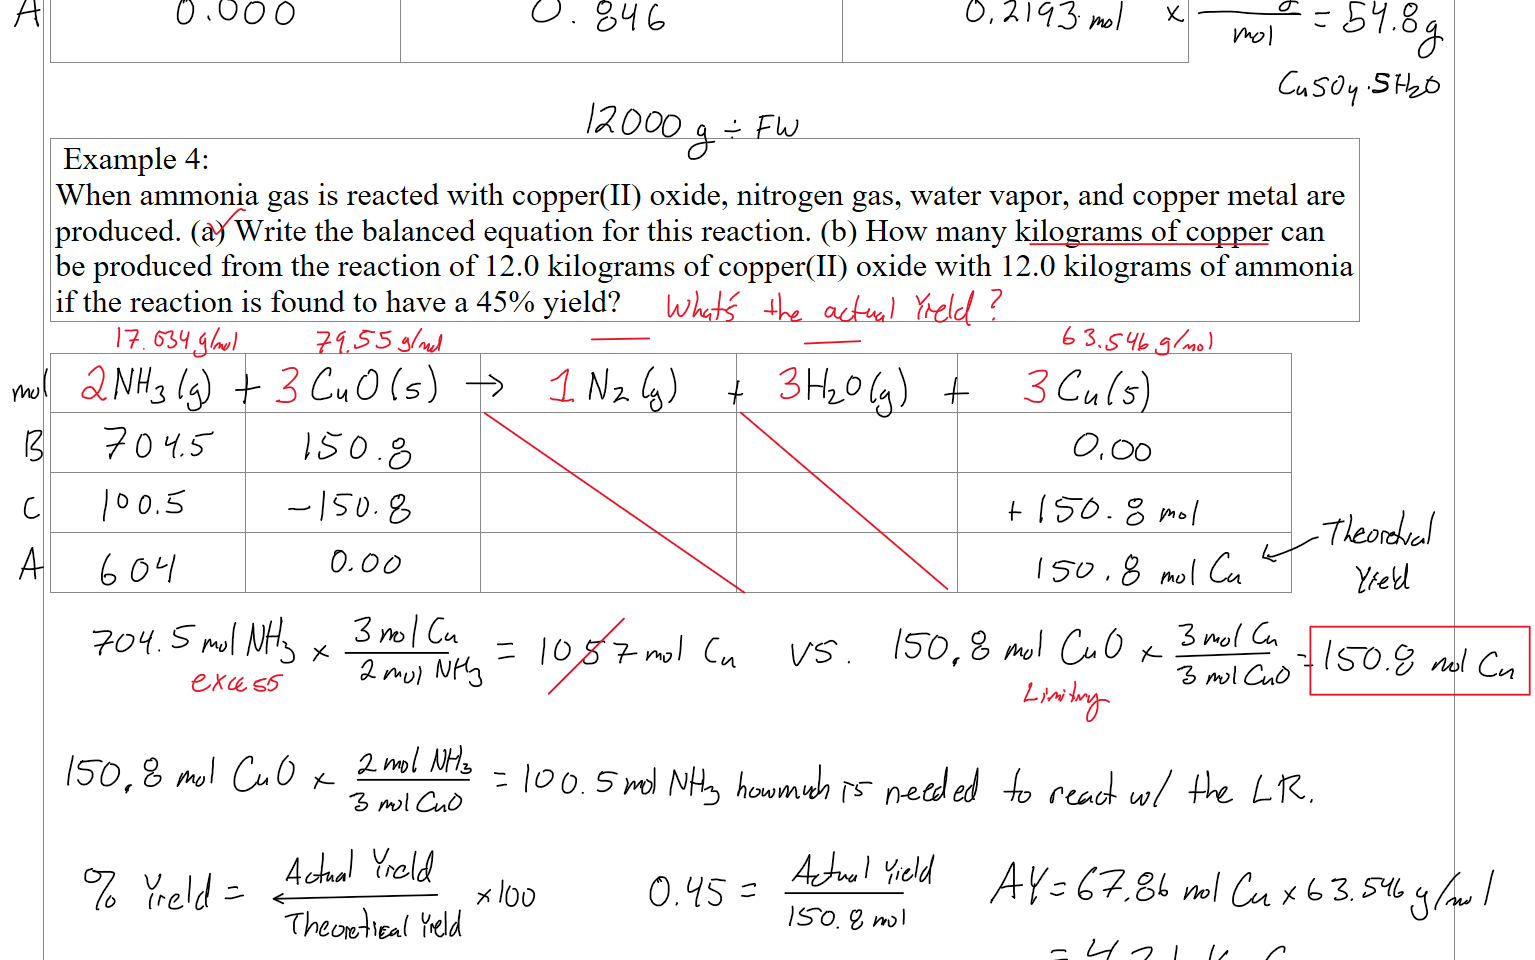 A 0.000 0.846 0.2193 mol × mol = 54.8g
CuSO4·5H2O
12000 g ÷ FW
Example 4:
When ammonia gas is reacted with copper(II) oxide, nitrogen gas, water vapor, and copper metal are
produced. (a) Write the balanced equation for this reaction. (b) How many kilograms of copper can
be produced from the reaction of 12.0 kilograms of copper(II) oxide with 12.0 kilograms of ammonia
if the reaction is found to have a 45% yield? What's the actual Yield?
17.034 g/mol 79.55 g/mol 63.546 g/mol
mol 2NH3(g) + 3CuO(s) → 1 N2(g) + 3H2O(g) + 3Cu(s)
B 704.5 150.8 0.00
C 100.5 -150.8 +150.8 mol
A 604 0.00 150.8 mol Cu
Theoretical
Yield
704.5 mol NH3 × 3 mol Cu / 2 mol NH3 = 1057 mol Cu vs. 150.8 mol CuO × 3 mol Cu / 3 mol CuO = 150.8 mol Cu
excess Limiting
150.8 mol CuO × 2 mol NH3 / 3 mol CuO = 100.5 mol NH3 how much is needed to react w/ the LR.
% Yield = Actual Yield / Theoretical Yield ×100 0.45 = Actual Yield / 150.8 mol AY = 67.86 mol Cu × 63.546 g/mol